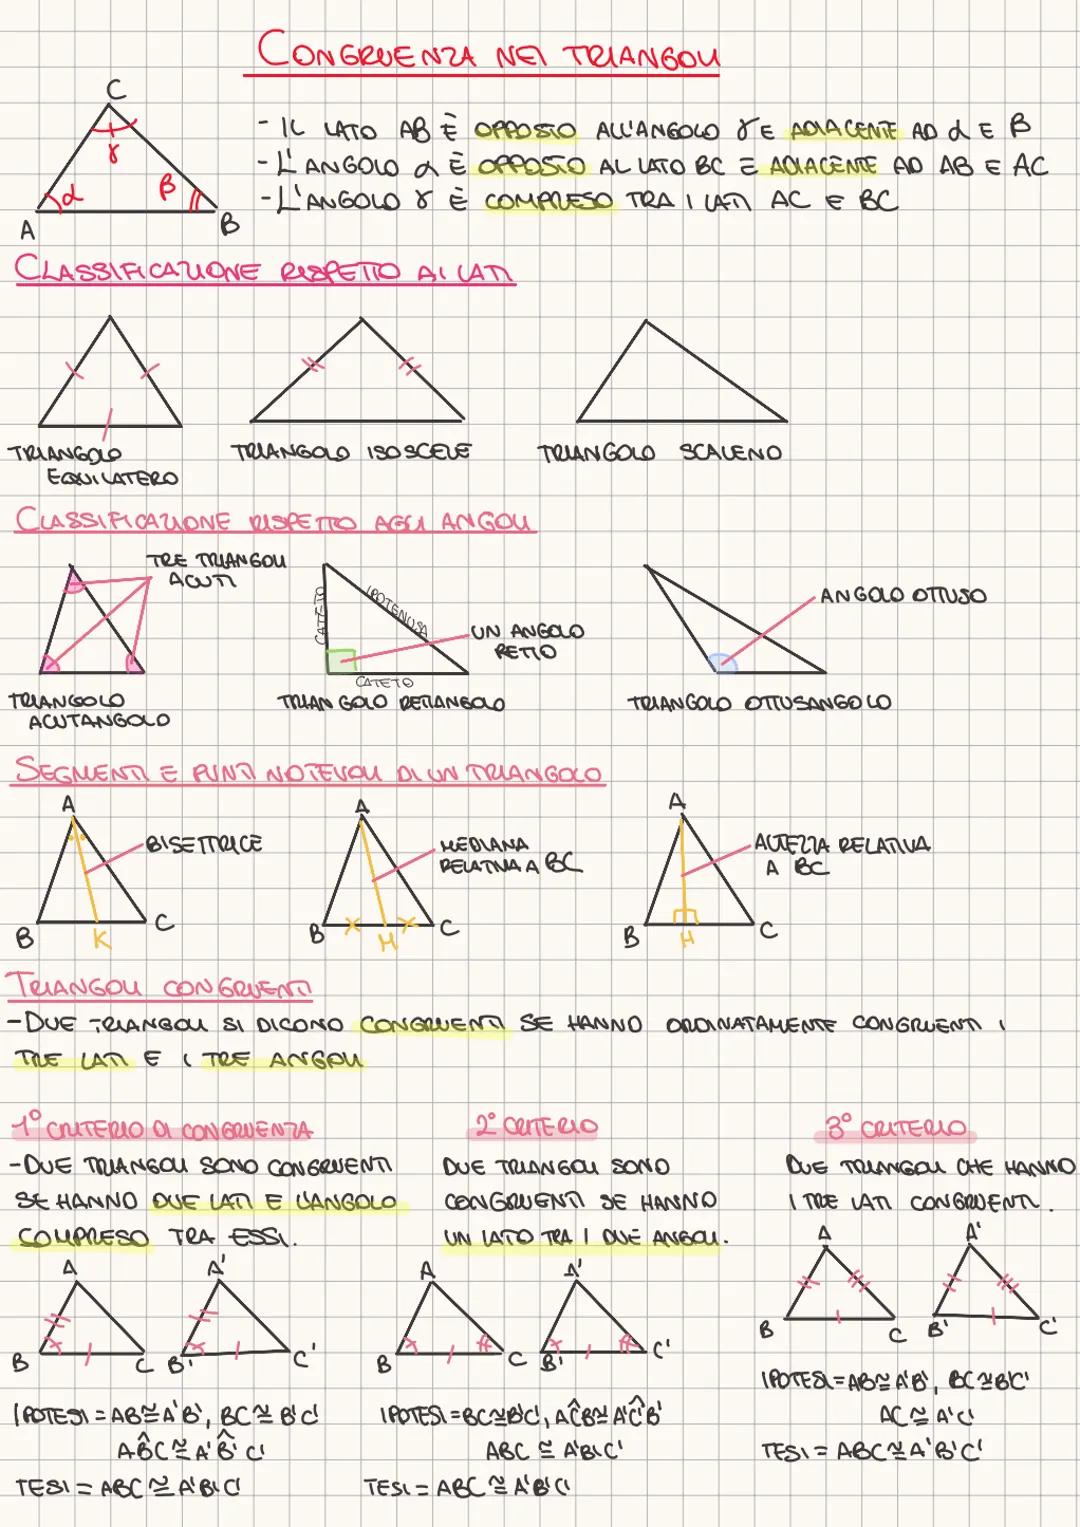 CONGRUENZA NEI TRIANGOLI
C
γ
α
β
A
B
- IL LATO AB È OPPOSTO ALL'ANGOLO γ E ADIACENTE AD α E β
- L'ANGOLO α È OPPOSTO AL LATO BC E ADIACENTE AD AB E AC
- L'ANGOLO γ È COMPRESO TRA I LATI AC E BC
CLASSIFICAZIONE RISPETTO AI LATI
TRIANGOLO
EQUILATERO
TRIANGOLO ISOSCELE
TRIANGOLO SCALENO
CLASSIFICAZIONE RISPETTO AGLI ANGOLI
TRE TRIANGOLI
ACUTI
TRIANGOLO
ACUTANGOLO
CATETO
IPOTENUSA
UN ANGOLO
RETTO
CATETO
TRIANGOLO RETTANGOLO
ANGOLO OTTUSO
TRIANGOLO OTTUSANGOLO
SEGMENTI E PUNTI NOTEVOLI DI UN TRIANGOLO
A
BISETTRICE
B
K
C
A
MEDIANA
RELATIVA A BC
B
M
C
A
ALTEZZA RELATIVA
A BC
B
H
C
TRIANGOLI CONGRUENTI
- DUE TRIANGOLI SI DICONO CONGRUENTI SE HANNO ORDINATAMENTE CONGRUENTI I
TRE LATI E I TRE ANGOLI
1° CRITERIO DI CONGRUENZA
- DUE TRIANGOLI SONO CONGRUENTI
SE HANNO DUE LATI E L'ANGOLO
COMPRESO TRA ESSI.
A
A'
B
C
B'
C'
IPOTESI = AB ≅ A'B', BC ≅ B'C'
AB̂C ≅ A'B̂'C'
TESI = ABC ≅ A'B'C'
2° CRITERIO
DUE TRIANGOLI SONO
CONGRUENTI SE HANNO
UN LATO TRA I DUE ANGOLI.
A
A'
B
C
B'
C'
IPOTESI = BC ≅ B'C', AĈB ≅ A'Ĉ'B'
ABC ≅ A'B'C'
TESI = ABC ≅ A'B'C'
3° CRITERIO
DUE TRIANGOLI CHE HANNO
I TRE LATI CONGRUENTI.
A
A'
B
C
B'
C'
IPOTESI = AB ≅ A'B', BC ≅ B'C'
AC ≅ A'C'
TESI = ABC ≅ A'B'C'